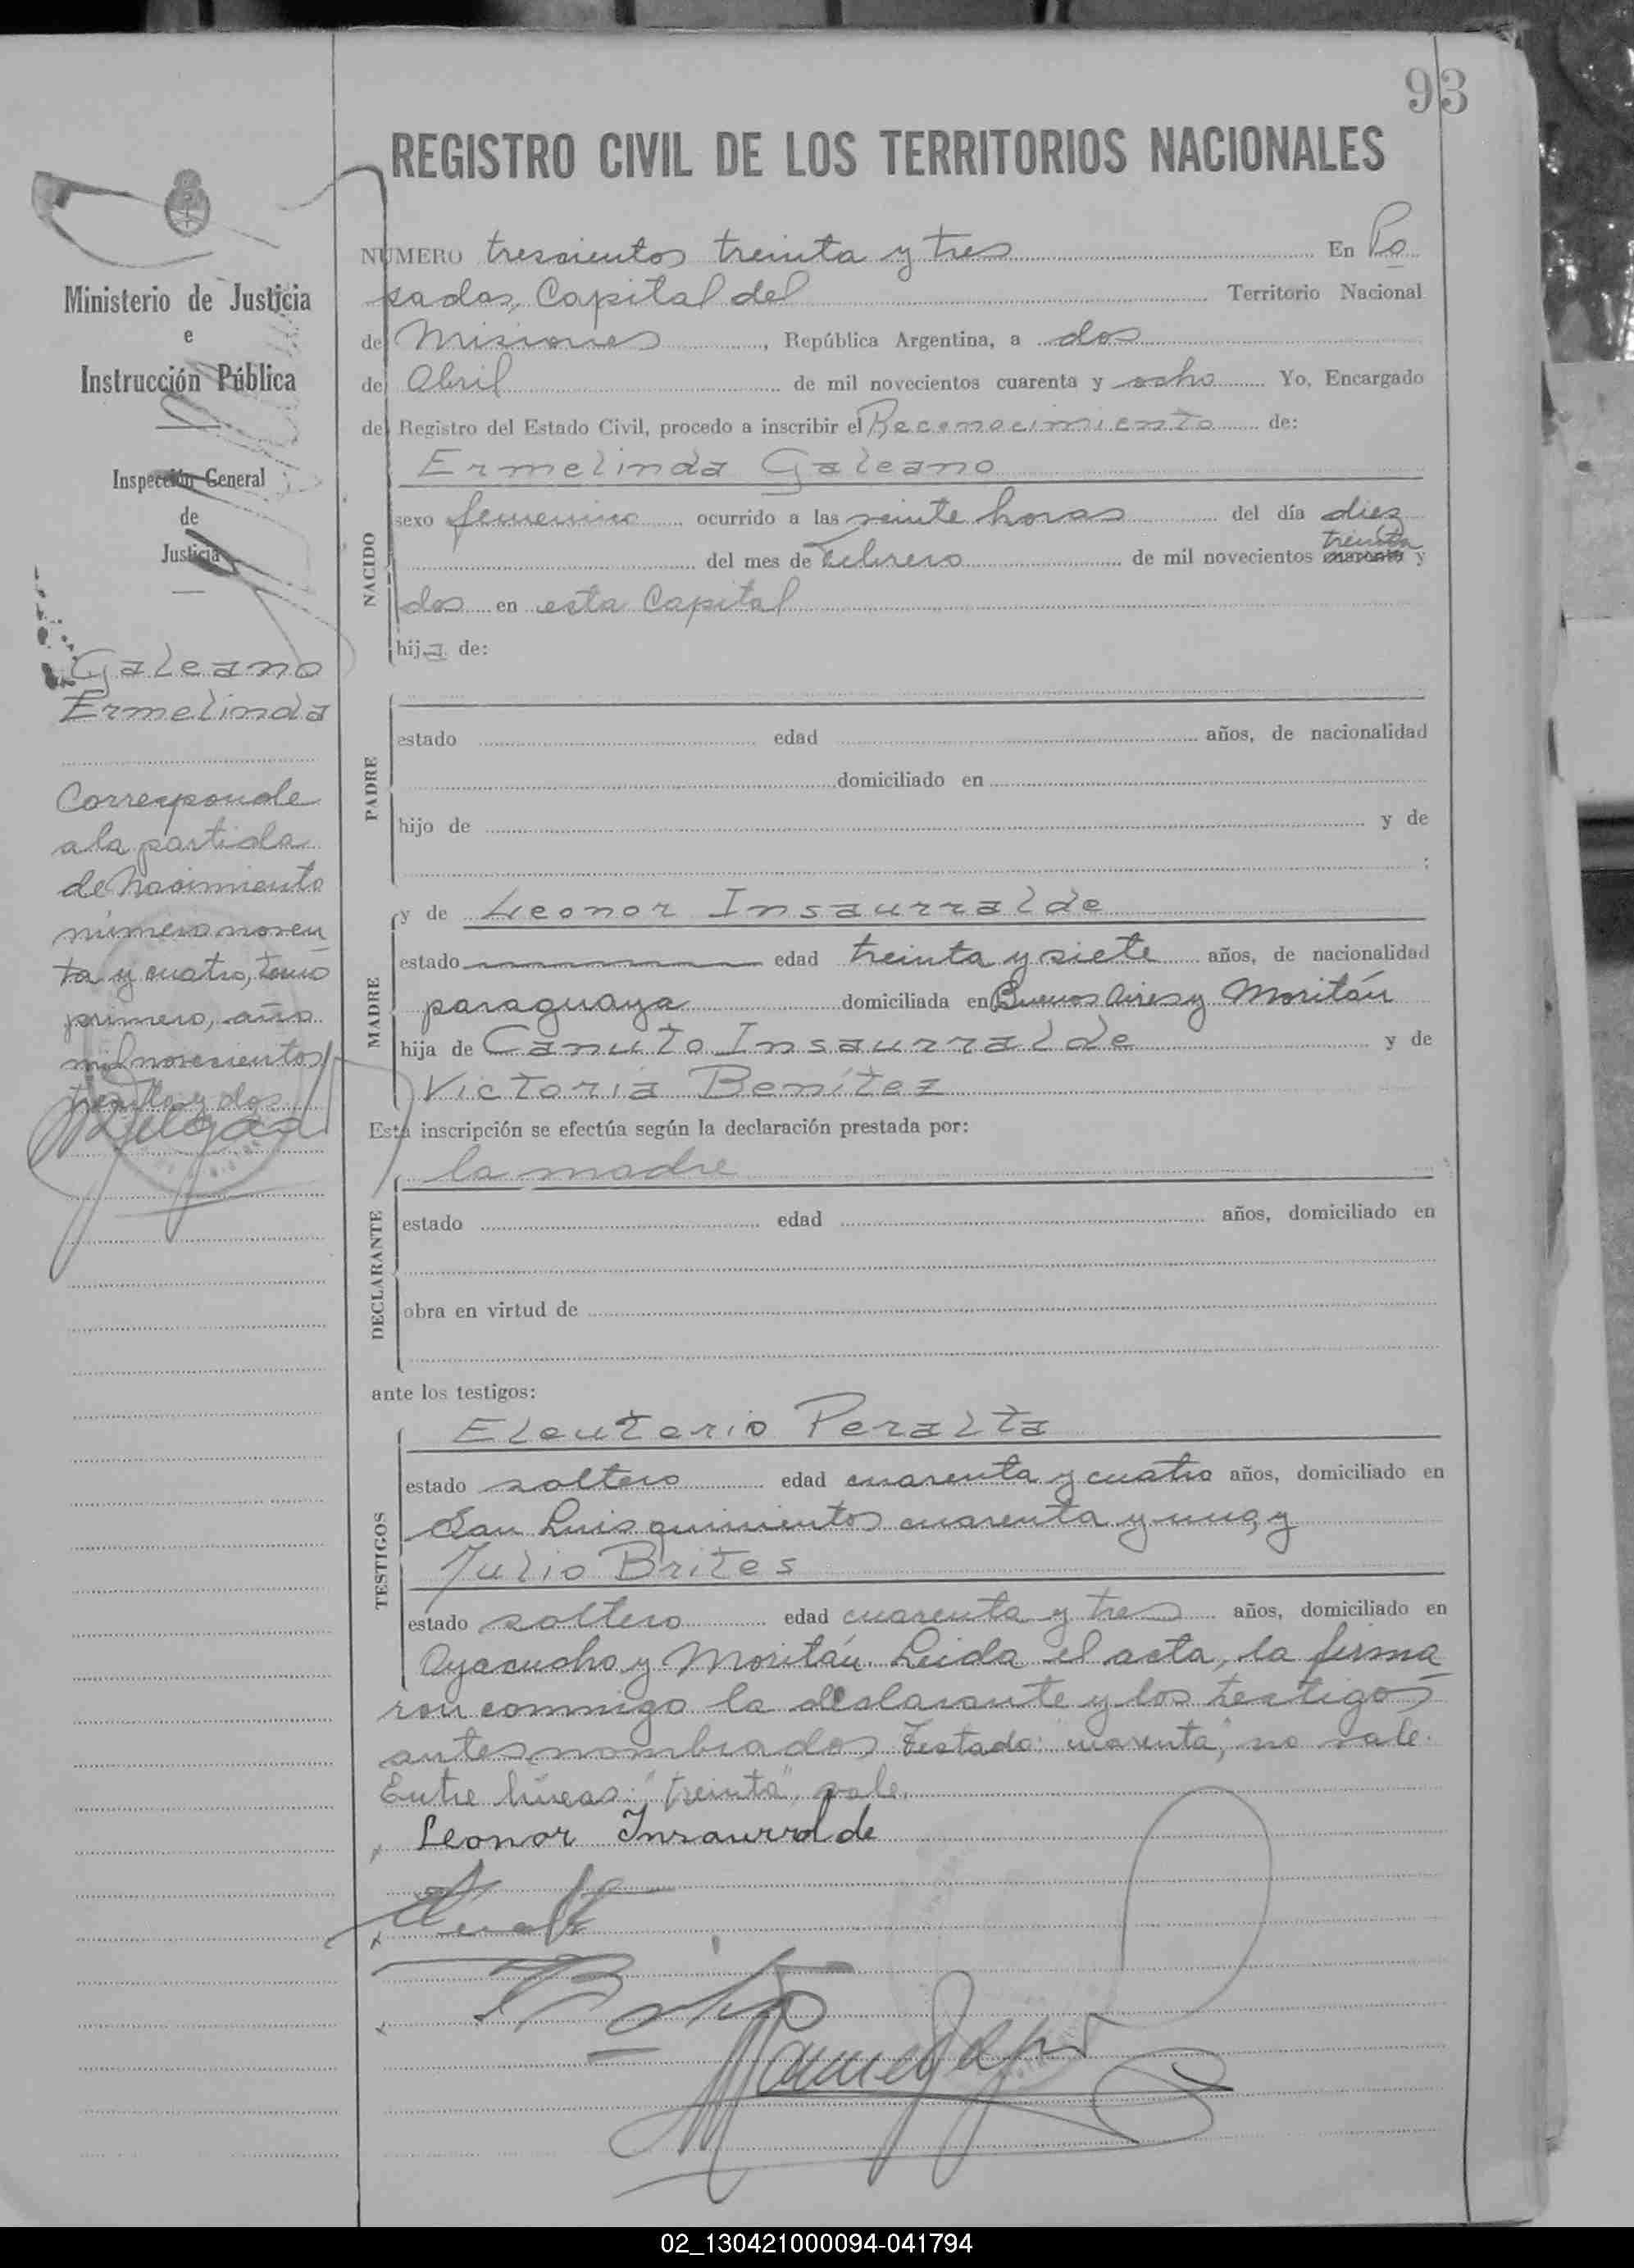 93
REGISTRO CIVIL DE LOS TERRITORIOS NACIONALES
Ministerio de Justicia
e
Instrucción Pública
Inspección General
de
Justicia
Galeano
Ermelinda
Corresponde
a la partida
de Nacimiento
número noven
ta y cuatro, tomo
primero, año
mil novecientos
treinta y dos
NUMERO trescientos treinta y tres En Po
sadas, Capital del Territorio Nacional
de Misiones, República Argentina, a dos
de Abril de mil novecientos cuarenta y ocho Yo, Encargado
del Registro del Estado Civil, procedo a inscribir el Reconocimiento de:
Ermelinda Galeano
NACIDO
sexo femenino ocurrido a las veinte horas del día diez
treinta
del mes de Febrero de mil novecientos cuarenta y
dos en esta Capital
hija de:
PADRE
estado edad años, de nacionalidad
domiciliado en
hijo de y de
:
MADRE
y de Leonor Insaurralde
estado edad treinta y siete años, de nacionalidad
paraguaya domiciliada en Buenos Aires y Moritán
hija de Canuto Insaurralde y de
Victoria Benítez
Esta inscripción se efectúa según la declaración prestada por:
la madre
DECLARANTE
estado edad años, domiciliado en
obra en virtud de
ante los testigos:
TESTIGOS
Eleuterio Peralta
estado soltero edad cuarenta y cuatro años, domiciliado en
San Luis quinientos cuarenta y uno, y
Julio Brites
estado soltero edad cuarenta y tres años, domiciliado en
Ayacucho y Moritán. Leida el acta, la firma
ron conmigo la declarante y los testigos
antes nombrados Testado: "cuarenta", no vale.
Entre líneas: "treinta", vale.
Leonor Insaurralde
02_130421000094-041794